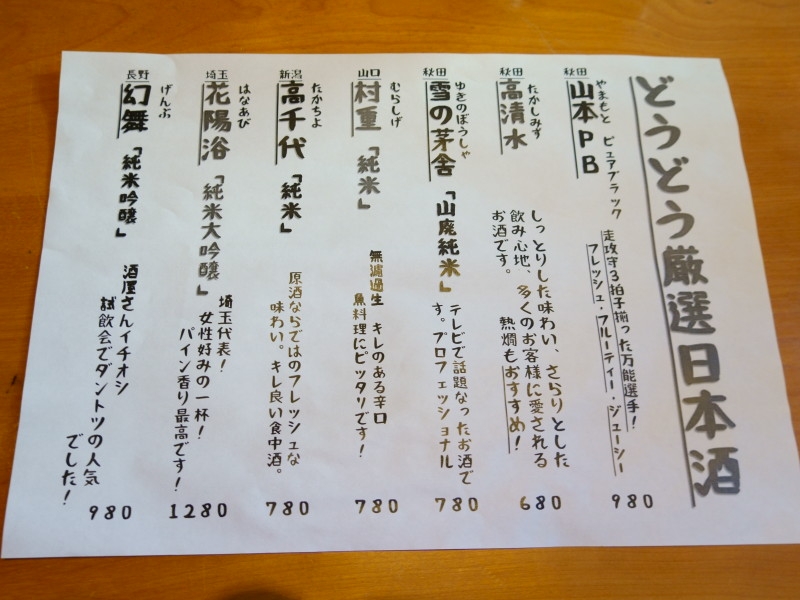 どうどう厳選日本酒
秋田
山本PB
やまもと ピュアブラック
走攻守3拍子揃った万能選手!
フレッシュ・フルーティー・ジューシー
980
秋田
高清水
たかしみず
しっとりした味わい、さらりとした
飲み心地、多くのお客様に愛される
お酒です。 熱燗もおすすめ!
680
秋田
雪の茅舎「山廃純米」
ゆきのぼうしゃ
テレビで話題なったお酒で
す。プロフェッショナル
780
山口
村重「純米」
むらしげ
無濾過生 キレのある辛口
魚料理にピッタリです!
780
新潟
高千代「純米」
たかちよ
原酒ならではのフレッシュな
味わい。キレ良い食中酒。
780
埼玉
花陽浴「純米大吟醸」
はなあび
埼玉代表!
女性好みの一杯!
パイン香り最高です!
1280
長野
幻舞「純米吟醸」
げんぶ
酒屋さんイチオシ
試飲会でダントツの人気
でした!
980